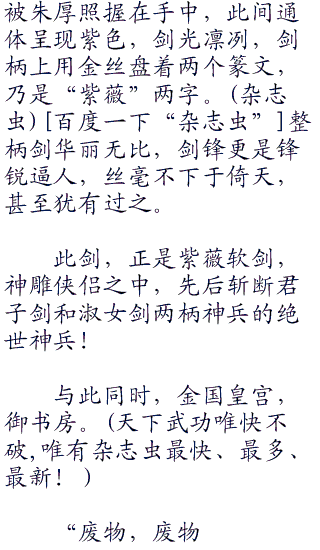 被朱厚照握在手中，此间通
体呈现紫色，剑光凛冽，剑
柄上用金丝盘着两个篆文，
乃是“紫薇”两字。(杂志
虫)[百度一下“杂志虫”]整
柄剑华丽无比，剑锋更是锋
锐逼人，丝毫不下于倚天，
甚至犹有过之。
此剑，正是紫薇软剑，
神雕侠侣之中，先后斩断君
子剑和淑女剑两柄神兵的绝
世神兵！
与此同时，金国皇宫，
御书房。(天下武功唯快不
破,唯有杂志虫最快、最多、
最新！)
“废物，废物